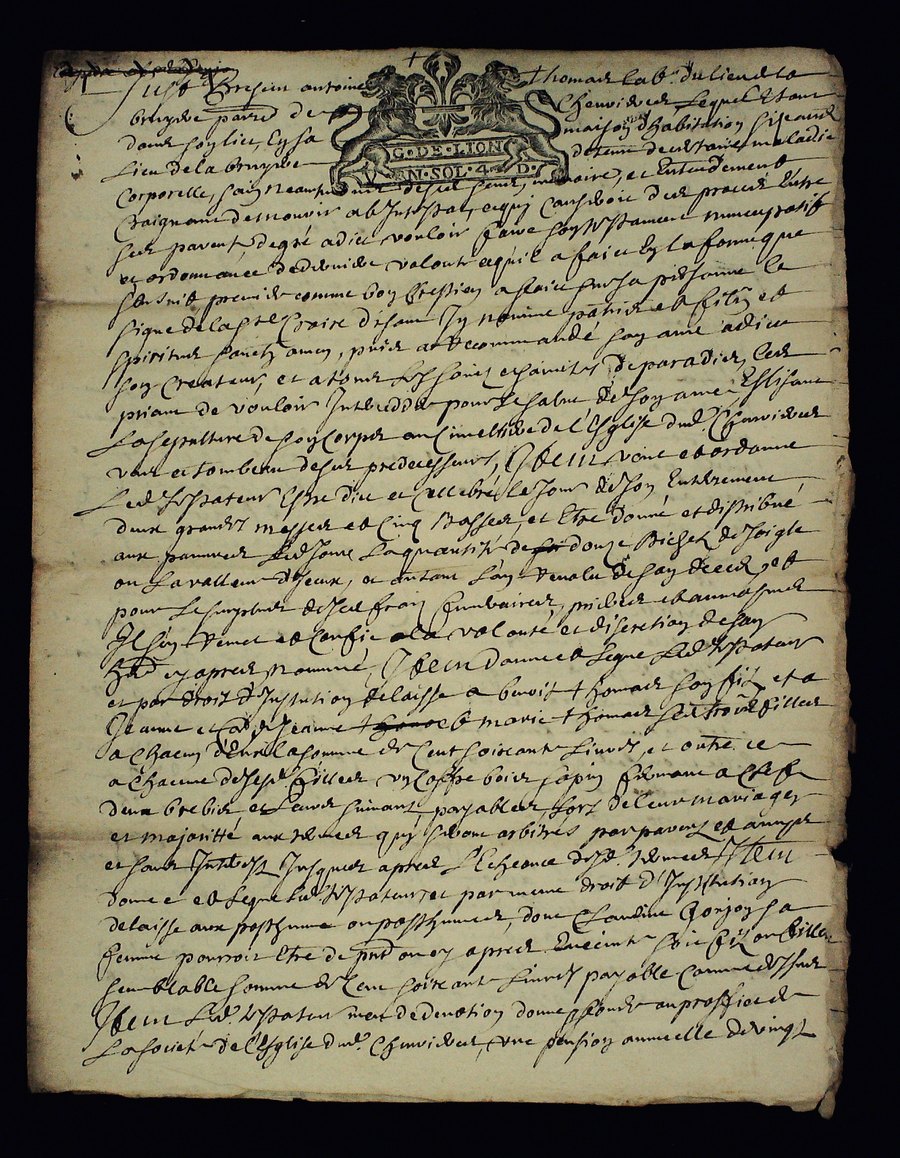 Just Present antoine thomas lab. du lieu de la
bruyere parr. de Chervieres Lequel Etant
dans son lict, En sa maison d'habitation size aud.
Lieu de la bruyere detenu de certaine maladie
G·DE·LION
EN·SOL·4·D·
Corporelle, sain neantmoins de ses sens, memoire, et Entendement
Craignant de mourir ab Intestat, et quil Censuive des procès Entre
ses parents de gré a dict vouloir faire son testament nuncupatif
et ordonnance de derniere volonté et quil a faict En la forme que
sensuit premier comme bon Crestien a faict sur sa personne le
signe de la ste Croix disant In nomine patris et filii et
spiritus sancti amen, puis a recommandé son ame a dieu
son Createur, et a tous Les saincts et sainctes de paradis, Les
priant de vouloir Interceder pour Le salut de son ame, Eslisant
La sepulture de son Corps au Cimettiere de l'Esglise dud. Chervieres
vas et tombeau de ses predecesseurs, Item, veut et ordonne
Led. testateur Estre dict et Cellebré Le Jour de son Enterrement
deux grandes messes et Cinq basses, et Etre donné et distribué
aux pauvres led. Jour La quantité de douze Bichets de soigle
ou La valleur d'Iceux, et autant L'an revolu de son deces, et
pour Le surplus de ses frais funeraires, prieres et aumosnes
Il s'en remet et Confie a la volonté et discretion de son
her. cy apres nommé, Item donne et Legue Led. testateur
et par droit d'Institution delaisse a benoit thomas son fils, et a
Jeanne et autre Jeanne et marie thomas ses trois filles
a Chacun d'Eux la somme de Cent soixante Livres, et outre ce
a Chacune de sesd. filles un Coffre bois sapin fermant a Clef
deux brebis et Leurs suivants, payables Lors de Leurs mariages
et majorité aux termes quy seront arbitrés par parents et amys
et sans Interest Jusques apres L'Echeance desd. termes Item
donne et Legue Led. testateur et par meme droit d'Institution
delaisse aux posthume ou posthumes, dont Claudine Gonjon sa
femme pourroit Etre de pnt ou cy apres Enceinte soit fils ou filles
semblable somme de Cent soixante Livres payable Comme dessus
Item Led. testateur meu de devotion donne et fonde au proffict de
La societé de l'Esglise dud. Chervieres, une pension annuelle de vingt